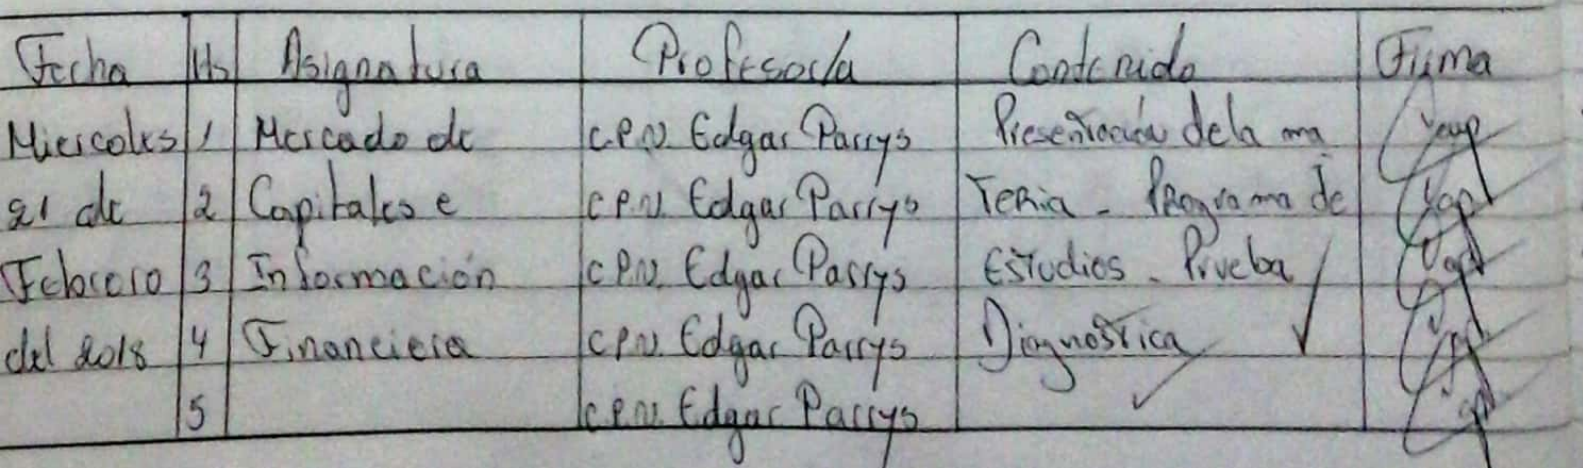 Fecha Hs Asignatura Profesor/a Contenido Firma
Miercoles 1 Mercado de C.P.N. Edgar Parrys Presentación de la ma
21 de 2 Capitales e C.P.N. Edgar Parrys teria - Programa de
Febrero 3 Información C.P.N. Edgar Parrys Estudios - Prueba
del 2018 4 Financiera C.P.N. Edgar Parrys Diagnostica
5 C.P.N. Edgar Parrys